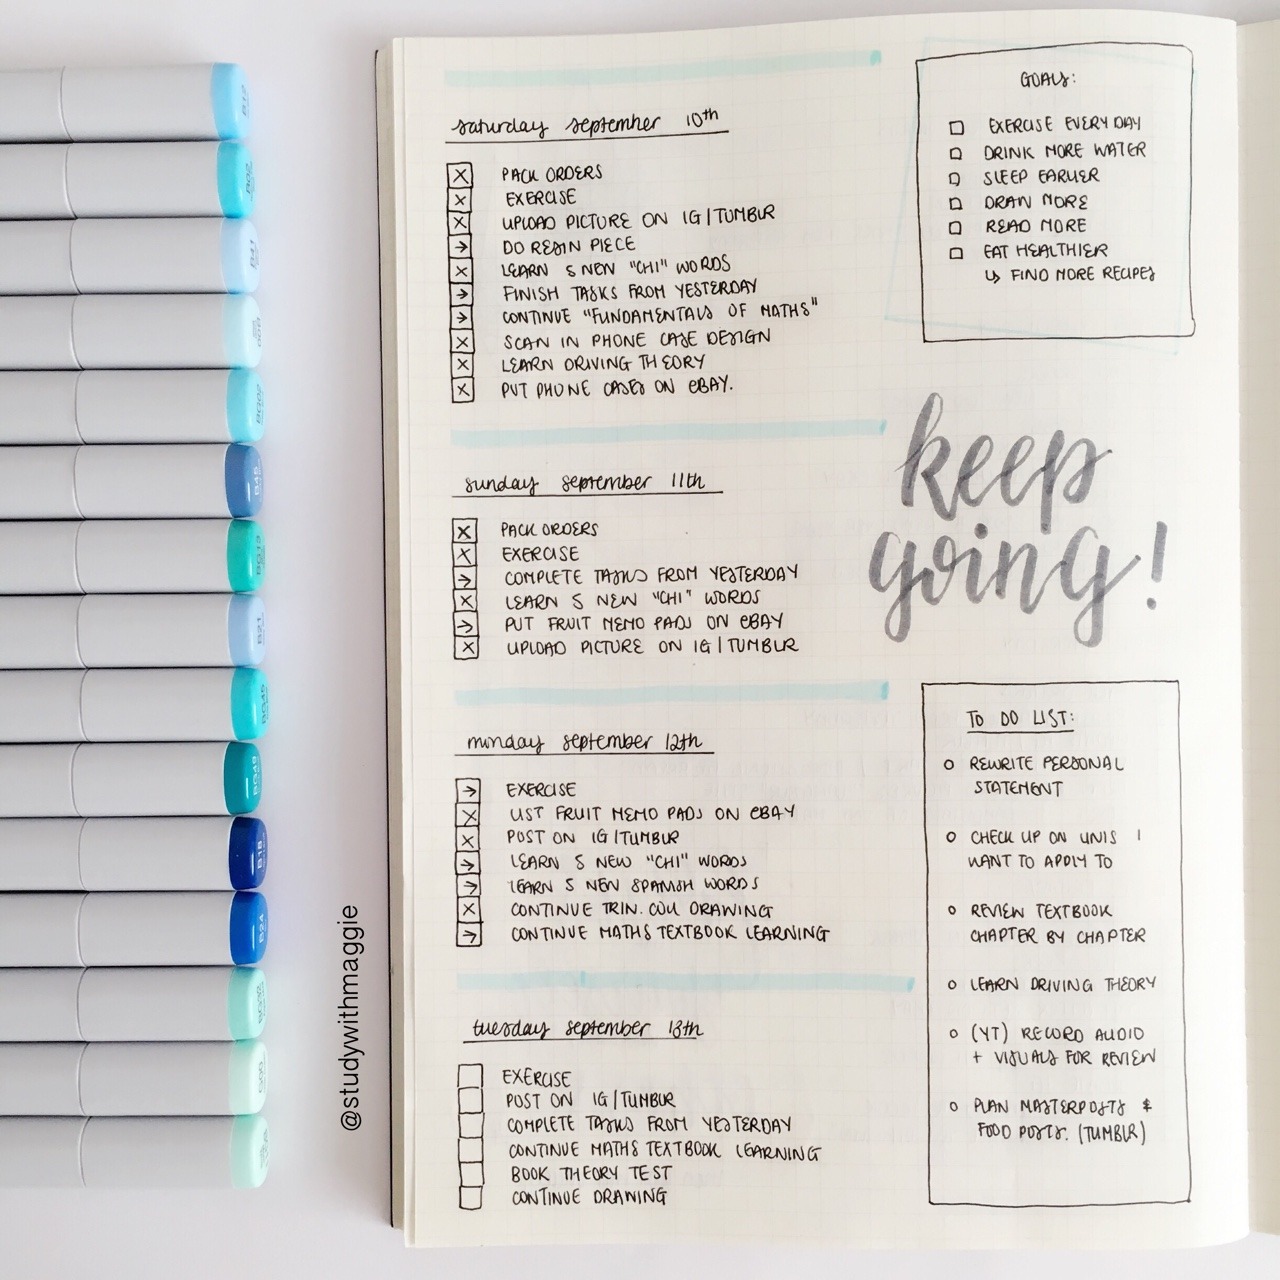 saturday september 10th
PACK ORDERS
EXERCISE
UPLOAD PICTURE ON IG|TUMBLR
DO RESIN PIECE
LEARN 5 NEW "CHI" WORDS
FINISH TASKS FROM YESTERDAY
CONTINUE "FUNDAMENTALS OF MATHS"
SCAN IN PHONE CASE DESIGN
LEARN DRIVING THEORY
PUT PHONE CASES ON eBAY.
sunday september 11th
PACK ORDERS
EXERCISE
COMPLETE TASKS FROM YESTERDAY
LEARN 5 NEW "CHI" WORDS
PUT FRUIT MEMO PADS ON eBAY
UPLOAD PICTURE ON IG|TUMBLR
monday september 12th
EXERCISE
LIST FRUIT MEMO PADS ON eBAY
POST ON IG|TUMBLR
LEARN 5 NEW "CHI" WORDS
LEARN 5 NEW SPANISH WORDS
CONTINUE TRIN. COLL DRAWING
CONTINUE MATHS TEXTBOOK LEARNING
tuesday september 13th
EXERCISE
POST ON IG|TUMBLR
COMPLETE TASKS FROM YESTERDAY
CONTINUE MATHS TEXTBOOK LEARNING
BOOK THEORY TEST
CONTINUE DRAWING
GOALS:
EXERCISE EVERY DAY
DRINK MORE WATER
SLEEP EARLIER
DRAW MORE
READ MORE
EAT HEALTHIER
↳ FIND MORE RECIPES
keep
going!
TO DO LIST:
REWRITE PERSONAL
STATEMENT
CHECK UP ON UNIS I
WANT TO APPLY TO
REVIEW TEXTBOOK
CHAPTER BY CHAPTER
LEARN DRIVING THEORY
(YT) RECORD AUDIO
+ VISUALS FOR REVIEW
PLAN MASTERPOSTS &
FOOD POSTS. (TUMBLR)
@studywithmaggie
B12
B02
B41
B45
B21
BG49
B18
B24